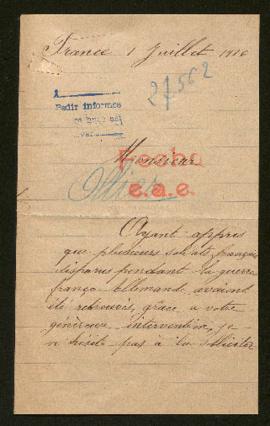 France 1 Juillet 1916
27.562
A
Pedir informes
Monsieur
Fecha
e.a.e.
Ayant appris
que plusieurs soldats français
disparus pendant la guerre
franco-allemande avaient
été retrouvés, grâce à votre
généreuse intervention, je
n'hésite pas à la solliciter